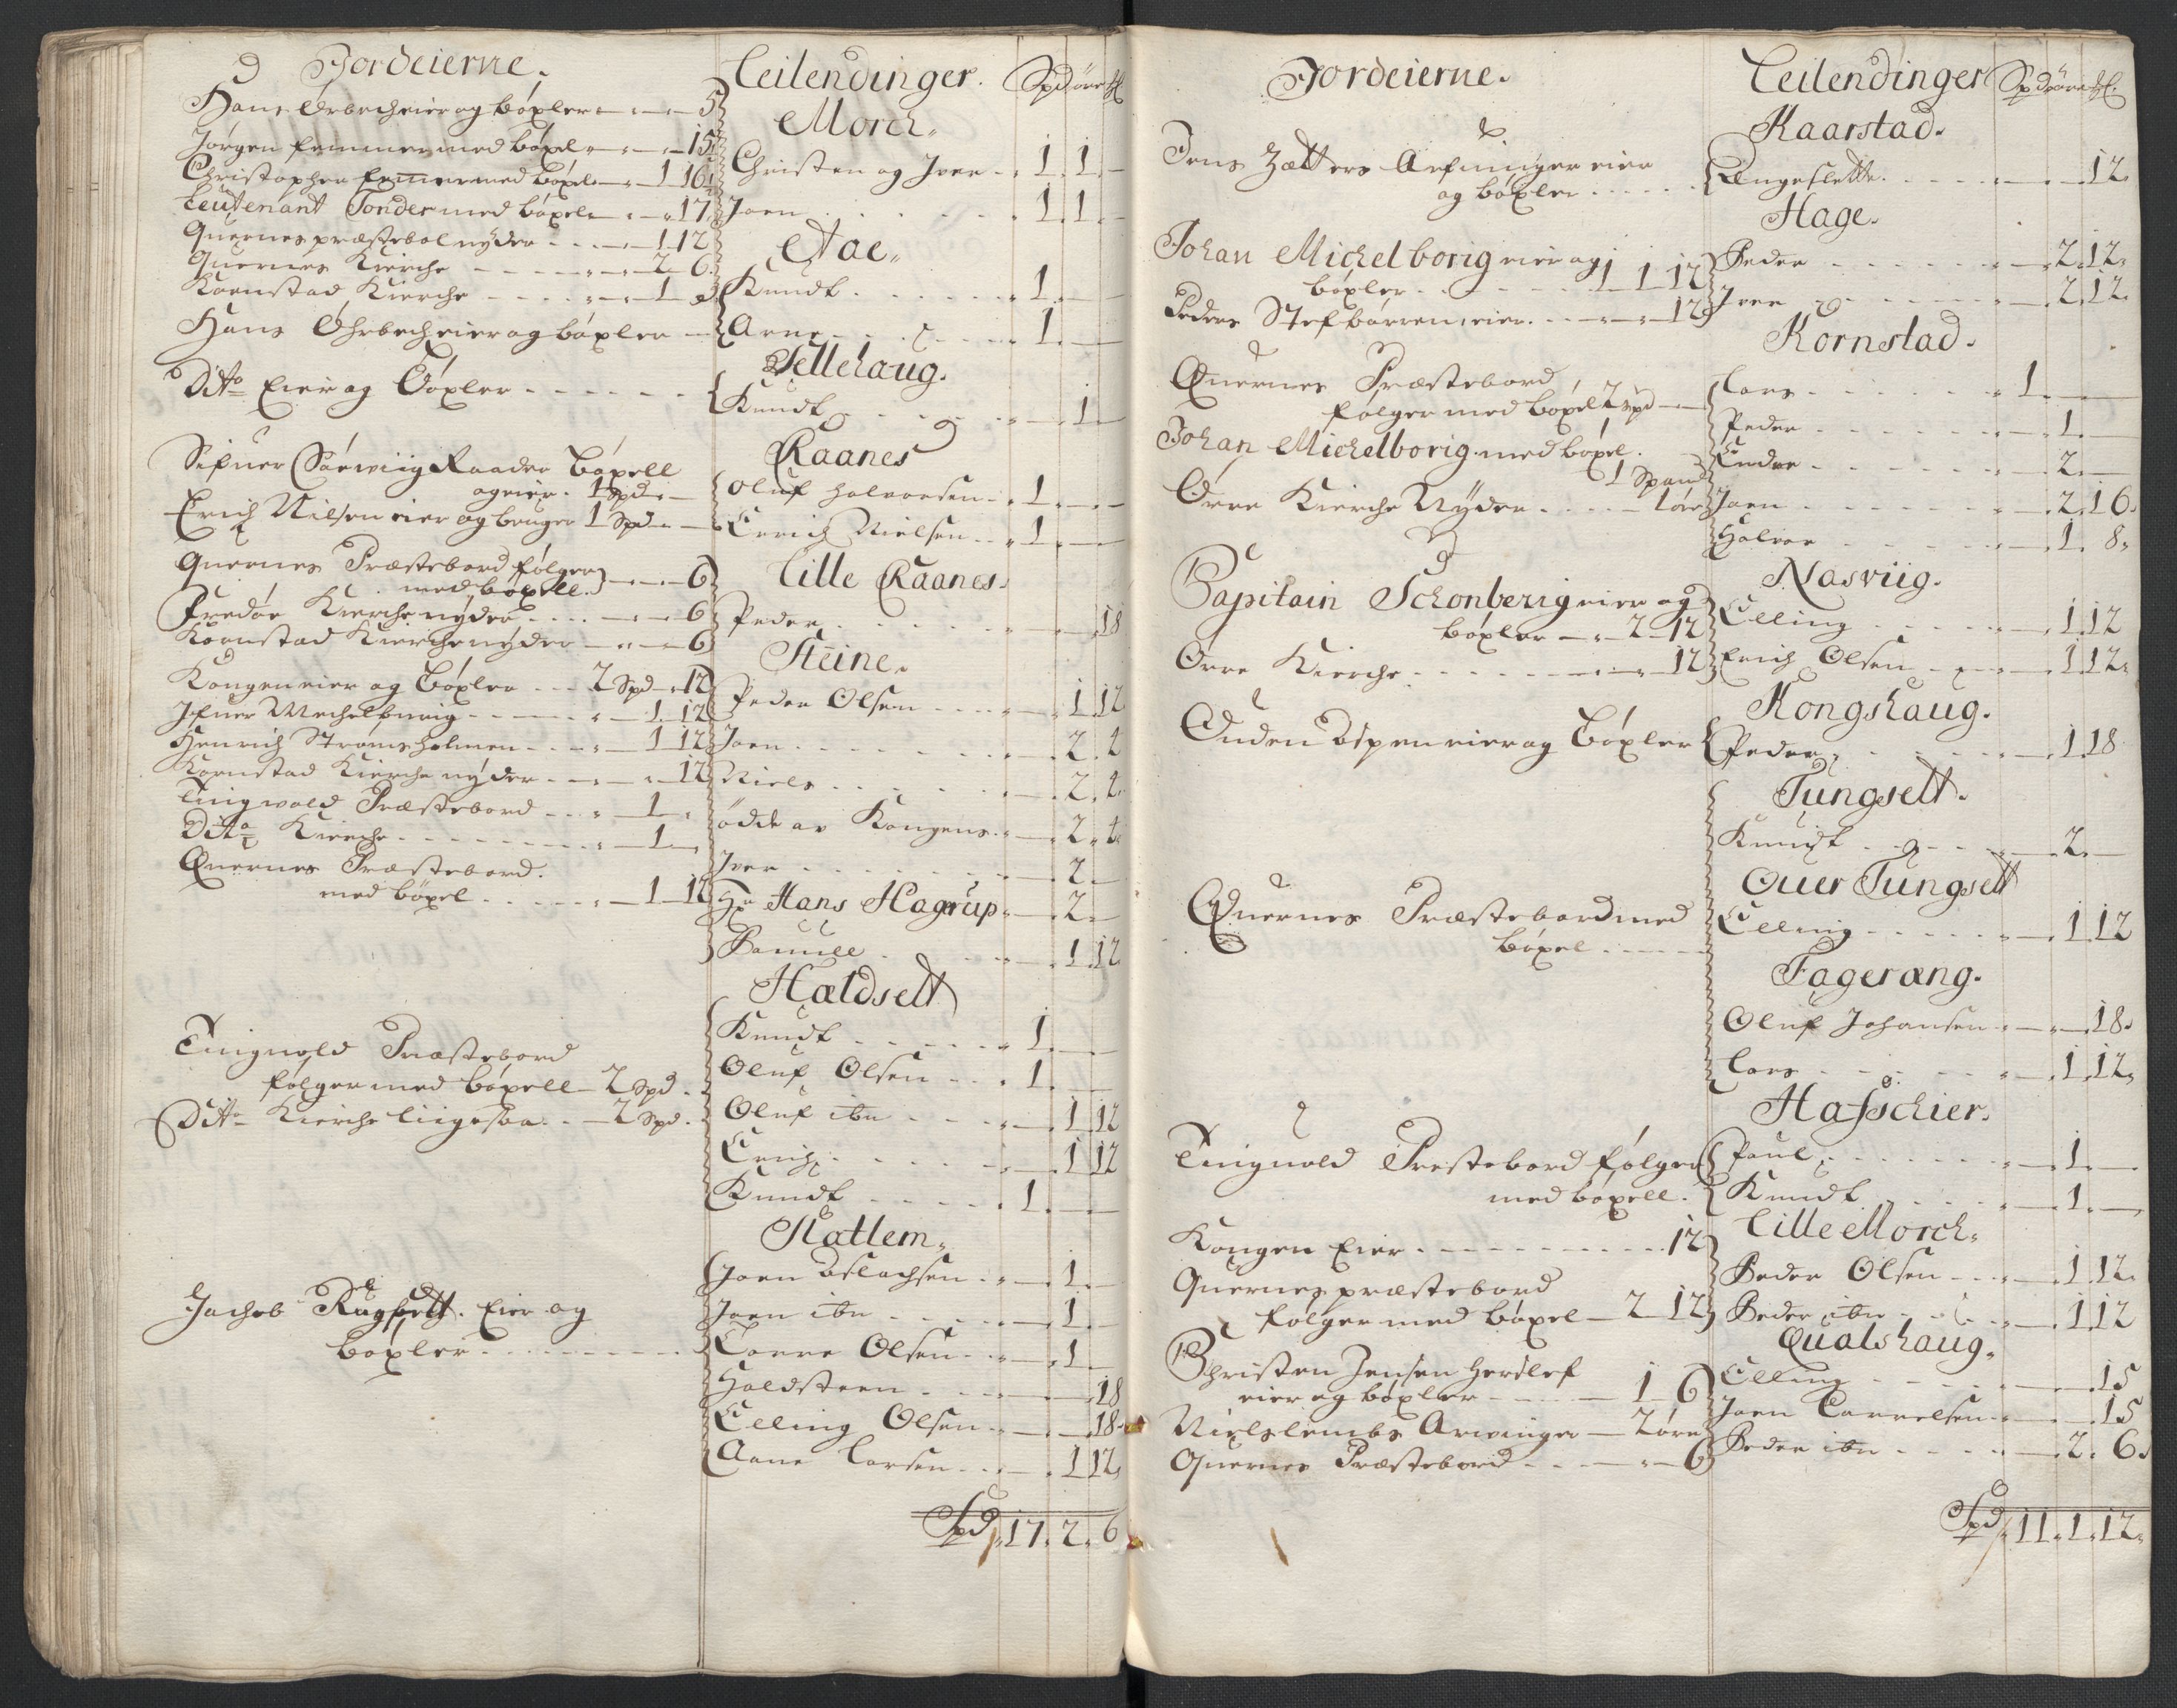 Jordeierne.
Hans Ørbech eier og böxler 5
Jörgen femmer med böxel 15
Christopher femmer med böxel 1 16½
Leutenant Tonder med böxel 17
Quernes præstebol nyder 1 12
Quernes Kierche 2 6
Kornstad Kierche 1
Hans Öhrbech eier og böxler
Dito Eier og Böxler
Sören Raader böxell
og eier 1 Spd
Erich Nilsen eier og bruger 1 Spd
Quernes Præstebord fölger
med böxell. 6
Fredöe Kierche nyder 6
Kornstad Kierche nyder 6
Kongen eier og Böxler 2 Spd 12
Mechelburig 1 12
Henrich Strömsholmen 1 12
Kornstad Kierche nyder 12
Tingwold Præstebord 1
Dito Kierche 1
Quernes Præstebord.
med böxel 1 12
Tingwold Præstebord
fölger med böxell 2 Spd.
Dito Kierche liigesaa 2 Spd.
Jachob Rugsett. Eier og
böxler
Leilendinger. Spd öre
Morch.
Christen og Iver 1 1
Joen 1 1
Aae.
Knudt 1
Arne 1
Tellehaug.
Knudt 1
Raanes
Oluf Halvorsen 1
Erich Nielsen 1
Lille Raanes.
Peder 18
Steine.
Peder Olsen 1 12
Joen 2 2
Niels 2 2
ödde av Kongens 2 2
Iver 2
Hr Hans Hagerup 2
Pouell 1 12
Hældsett
Knudt 1
Oluf Olsen 1
Oluf ibn 1 12
Erich 1 12
Knudt 1
Hatlem.
Joen Aslachsen 1
Joen ibn 1
Torre Olsen 1
Holdsteen 18
Elling Olsen 18
Aane Larsen 1 12
Spd 17. 2. 6
Jordeierne.
Jens Zætters Arfvinger eier
og böxler
Johan Michelborig eier og
böxler 1 1 12
Peders Stefbörren, eier 12
Quernes Præstebord
fölger med böxel 2 spd
Johan Michelborig med böxel.
1 Span
Örre Kierche Nyder 1 öre
Capitain Schonberig eier og
böxler 2 12
Örre Kierche 12
Ouden Aspen eier og Böxler
Quernes Præstebord med
böxel
Tingwold Prestebord fölger
med böxell.
Kongen Eier 12
Quernes præstebord
fölger med böxel 2 12
Christen Jensen Herslef
eier og böxler 1 6
Niels Lembs Arvinger 2 öre
Quernes Præstebord 6
Leilendinger Spd öre
Kaarstad.
Engeslette 12
Hage.
Peder 2 12
Iver 2 12
Kornstad.
Lars 1
Peder 1
Endre 2
Joen 2 16
Halvor 1 8
Nasviig.
Elling 1 12
Erich Olsen 1 12
Kongshaug.
Peder 1 18
Tungselt.
Knudt 2
Ouer Tungselt
Elling 1 12
Fagerang.
Oluf Johansen 18
Lars 1 12
Hafschier.
Poul 1
Knudt 1
Lille Morch.
Peder Olsen 1 12
Peder ibn 1 12
Qualshaug.
Elling 15
Joen Torrelsen 15
Peder ibn 2 6
Spd 11. 1. 12